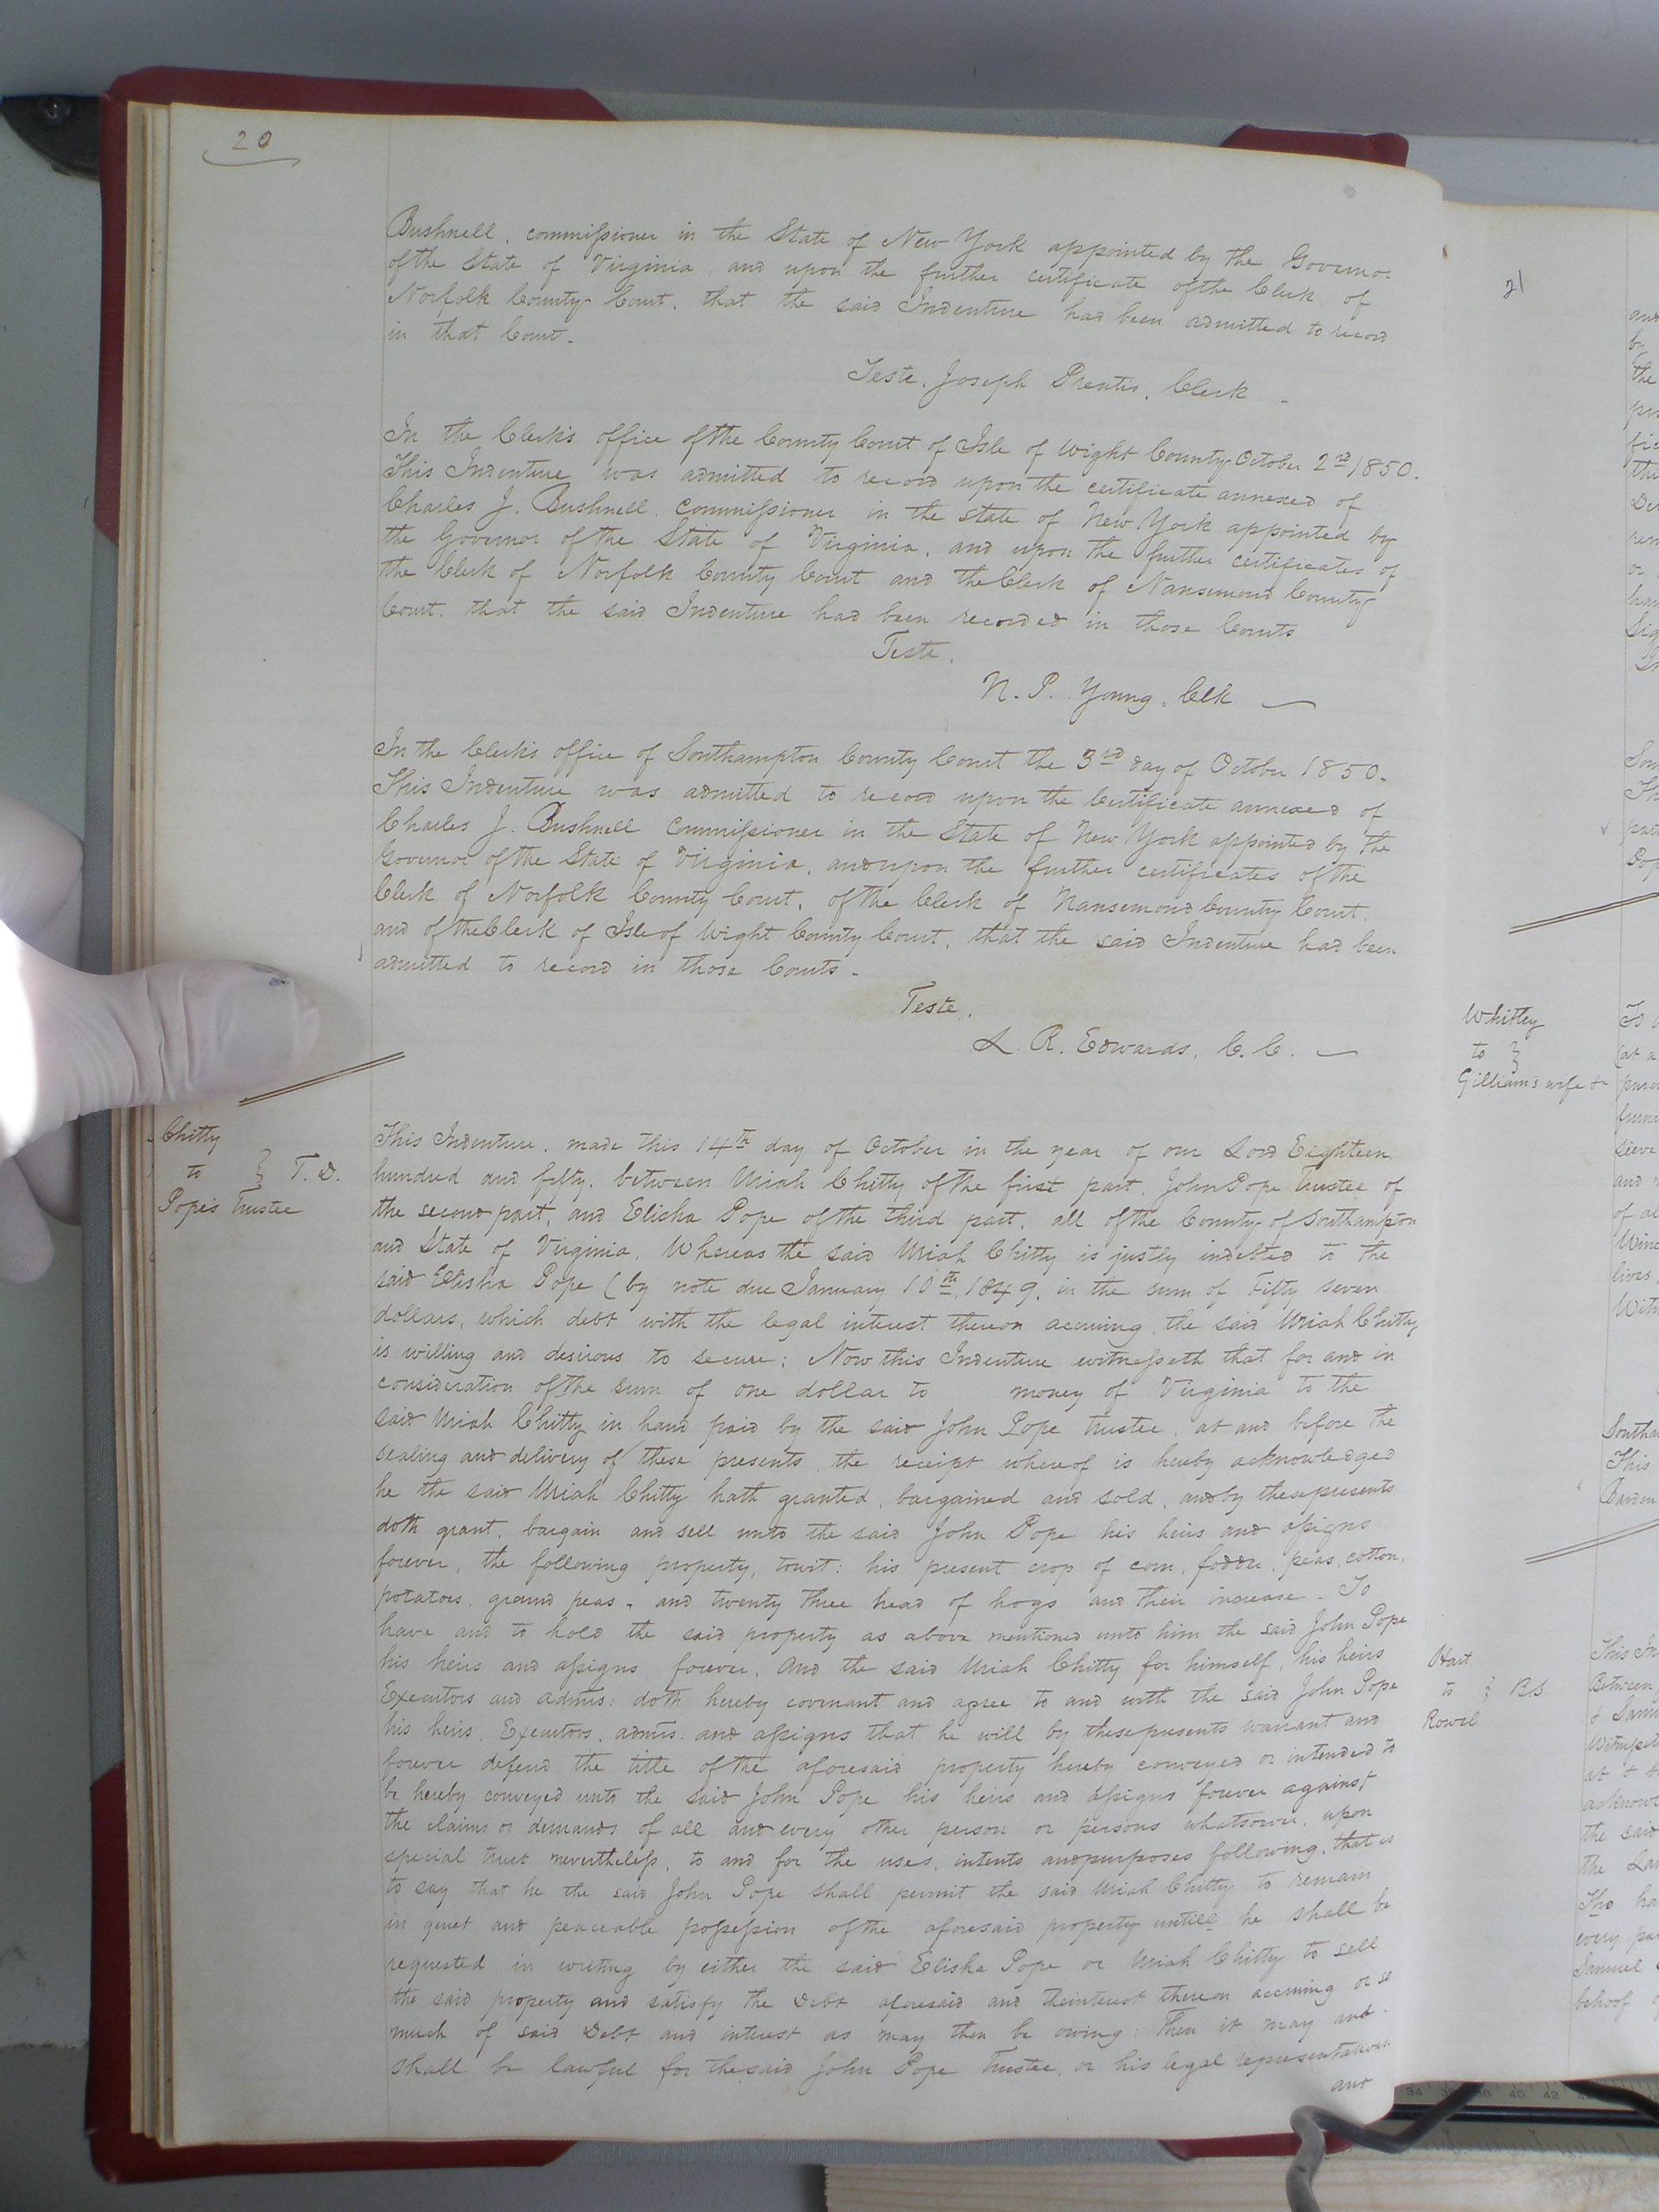 20
Bushnell, commissioner in the State of New York appointed by the Governor
of the State of Virginia, and upon the further certificate of the Clerk of
Norfolk County Court, that the said Indenture had been admitted to record
in that Court.
Teste, Joseph Prentis, Clerk
In the Clerk's office of the County Court of Isle of Wight County October 2nd 1850.
This Indenture was admitted to record upon the certificate annexed of
Charles J. Bushnell, Commissioner in the State of New York appointed by
the Governor of the State of Virginia, and upon the further certificates of
the Clerk of Norfolk County Court and the Clerk of Nansemond County
Court, that the said Indenture had been recorded in those Courts
Teste,
N. P. Young, Clk
In the Clerk's office of Southampton County Court the 3rd day of October 1850.
This Indenture was admitted to record upon the Certificate annexed of
Charles J. Bushnell Commissioner in the State of New York appointed by the
Governor of the State of Virginia, and upon the further certificates of the
Clerk of Norfolk County Court, of the Clerk of Nansemond County Court,
and of the Clerk of Isle of Wight County Court, that the said Indenture had been
admitted to record in those Courts.
Teste,
L. R. Edwards, C. C.
Chitty
to } T. D.
Pope's Trustee
This Indenture, made this 14th day of October in the year of our Lord Eighteen
hundred and fifty, between Uriah Chitty of the first part, John Pope Trustee of
the second part, and Elisha Pope of the third part, all of the County of Southampton
and State of Virginia, Whereas the said Uriah Chitty is justly indebted to the
said Elisha Pope (by note due January 10th, 1849, in the sum of Fifty seven
dollars, which debt with the legal interest thereon accruing, the said Uriah Chitty
is willing and desirous to secure; Now this Indenture witnesseth that for and in
consideration of the sum of one dollar to money of Virginia to the
said Uriah Chitty in hand paid by the said John Pope trustee, at and before the
sealing and delivery of these presents, the receipt whereof is hereby acknowledged
he the said Uriah Chitty hath granted, bargained and sold, and by these presents
doth grant, bargain and sell unto the said John Pope his heirs and assigns
forever, the following property, towit: his present crop of corn, fodder, peas, cotton,
potatoes, ground peas, and twenty three head of hogs and their increase. To
have and to hold the said property as above mentioned unto him the said John Pope
his heirs and assigns forever, And the said Uriah Chitty for himself, his heirs
Executors and admrs: doth hereby covenant and agree to and with the said John Pope
his heirs, Executors, admrs: and assigns that he will by these presents warrant and
forever defend the title of the aforesaid property hereby conveyed or intended to
be hereby conveyed unto the said John Pope his heirs and assigns forever against
the claims or demands of all and every other person or persons whatsoever, upon
special trust nevertheless, to and for the uses, intents and purposes following, that is
to say that he the said John Pope shall permit the said Uriah Chitty to remain
in quiet and peaceable possession of the aforesaid property untill he shall be
requested in writing by either the said Elisha Pope or Uriah Chitty to sell
the said property and satisfy the Debt aforesaid and the interest thereon accruing or so
much of said Debt and interest as may then be owing: Then it may and
shall be lawful for the said John Pope Trustee, or his legal representatives
and
21
Whitley
to }
Gilliam's wife &c
Hart
to } B.S.
Rowel